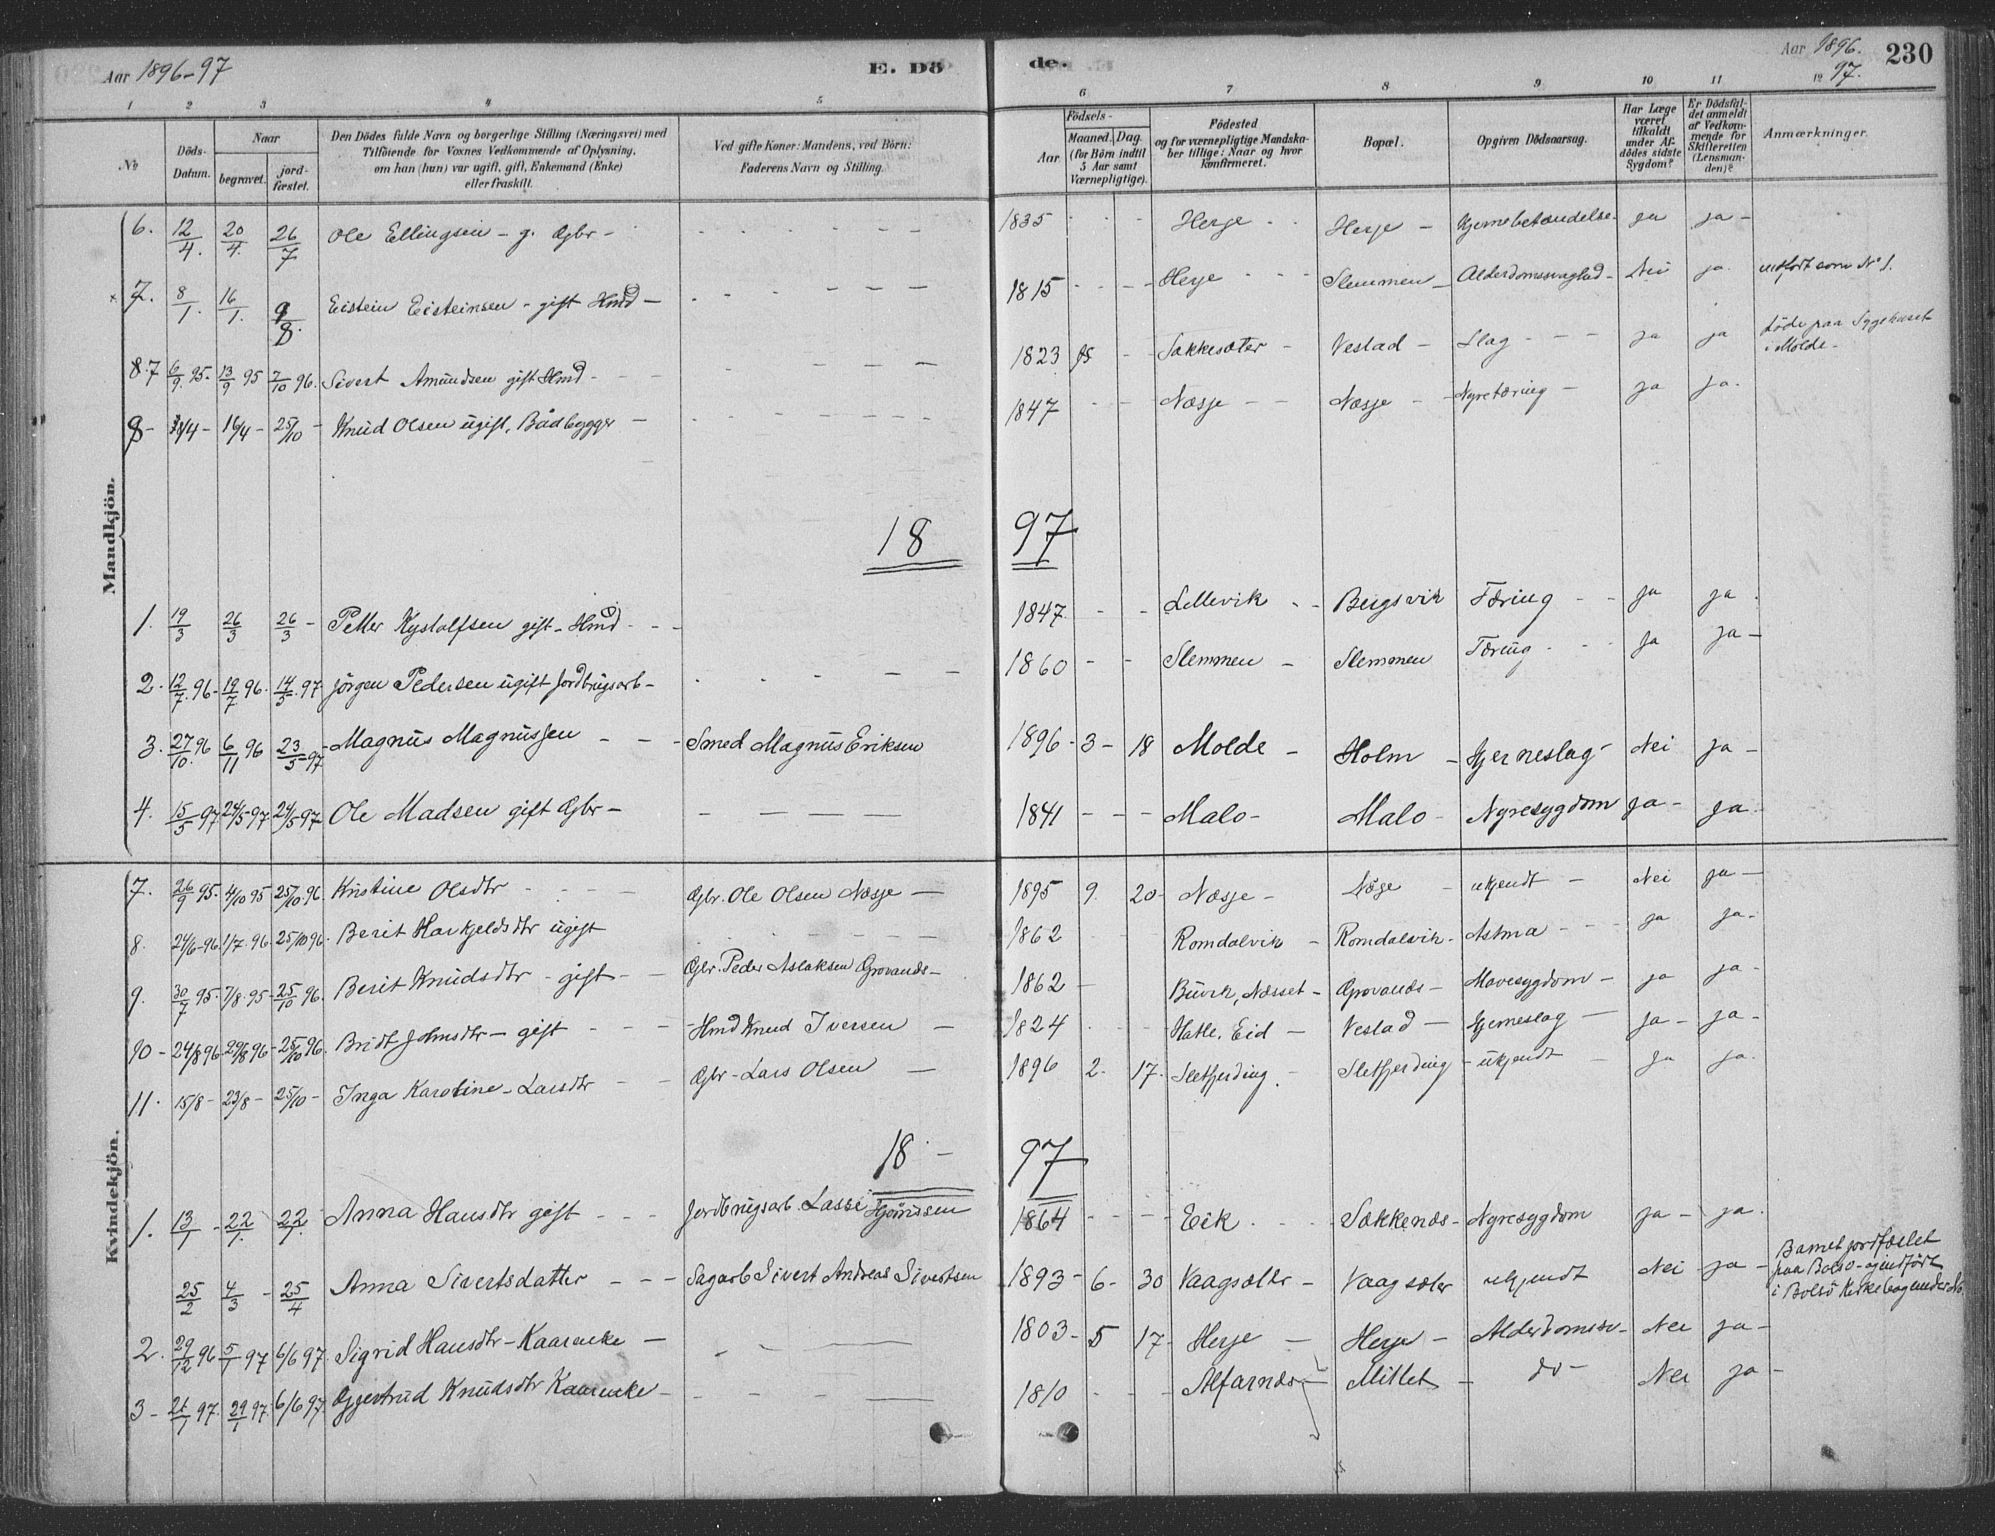 Aar 1896-97
E. Dö
de.
Aar 1896.
97.
230
1 2 3 4 5 6 7 8 9 10 11 12
No
Döds-Datum.
Naar
begravet.
jord-fæstet.
Den Dödes fulde Navn og borgerlige Stilling (Næringsvei) med
Tilföiende for Voxnes Vedkommende af Oplysning,
om han (hun) var ugift, gift, Enkemand (Enke)
eller fraskilt.
Ved gifte Koner: Mandens, ved Börn:
Faderens Navn og Stilling.
Födsels-
Aar.
Maaned. Dag.
(for Börn indtil
5 Aar samt
Værnepligtige).
Födested
og for værnepligtige Mandska-
ber tillige: Naar og hvor
konfirmeret.
Bopæl.
Opgiven Dödsaarsag.
Har Læge
været
tilkaldt
under Af-
dödes sidste
Sygdom?
Er Dödsfal-
det anmeldt
af Vedkom-
mende for
Skifteretten
(Lensman-
den)?
Anmærkninger.
Mandkjön.
6. 12/4. 20/4. 26/7 Ole Ellingsen - g. Gbr - 1835 Herje Herje - Hjernebetændelse - ja ja -
7. 8/1. 16/1. 9/8. Eistein Eisteinsen - gift Hmd - 1815 Herje Slemmen - Alderdomssvaghed - Nei ja udfört som No 1.
8. 7 6/9. 95. 13/9 95 7/10 96. Sivert Amundsen gift Hmd - 1823 Sækkesæter - Vestad - Slag - ja ja döde paa Sygehuset
i Molde -
8 - 16/4 - 25/10 - Knud Olsen ugift, Bådbygger - 1847 Næsje - Næsje - Nyretæring - ja ja.
18 97
1. 19/3 26/3 26/3 - Petter Kystolfsen gift - Hmd - 1847. Lillevik - Bergsvik Tæring - ja ja.
2. 12/7. 96 - 19/7. 96. 14/5. 97 Jörgen Pedersen ugift Jordbrugsarb - 1860 - Slemmen - Slemmen Tæring - ja ja -
3. 27/10. 96 6/11 96 23/5 - 97 Magnus Magnussen - Smed Magnus Eriksen 1896 - 3 - 18 Molde - Holm - Hjerneslag - Nei ja -
4. 15/5 97. 24/5 - 97 24/5 97 Ole Madsen gift Gbr - 1841 - Malo - Malo - Nyresygdom ja - ja -
Kvindekjön.
7. 26/9 95. 4/10 95 25/10 96 Kristine Olsdtr Gbr. Ole Olsen Næsje - 1895 9. 20 - Næsje - Nöje - ukjendt - Nei ja -
8. 24/6 - 96 1/7. 96. 25/10 96. Berit Harkjeldsdtr ugift 1862 Romdalvik - Romdalvik - Astma - ja ja -
9. 30/7 95. 7/8. 95 - 25/10 96. Berit Knudsdtr - gift - Gbr. Peder Aslaksen Grovands - 1862 - Buvik, Næsset - Grovands - Mavesygdom - ja ja -
10 - 24/8 96 - 29/8 96 - 25/10 96. Bridt Johnsdtr - gift - Hmd Knud Iversen - 1824 Hatle, Eid - Vestad - Hjerneslag - ja - ja -
11. 15/8 - 23/8 - 25/10 - Inga Karoline - Larsdtr - Gbr - Lars Olsen - 1896 2. 17 - Sletfjerding. - Sletfjerding - ukjendt - ja ja.
18 - 97
1. 13/1 - 22/1. 22/1. Anna Hansdtr gift - Jordbrugsarb. Lasse 1864 - Eik - Sækkenes - Nyresygdom ja - ja.
25/2 4/3 - 25/4 Anna Sivertsdatter - Sagarb Sivert Andreas Sivertsen 1893 - 6 - 30 Vaagsæter - Vaagsæter ukjendt Nei ja - Barnet jordfæstet
paa Bolsö - ogindfört
i Bolsö Kirkebog under No
2. 29/12 96 5/1 97 6/6 97. Sigrid Hansdtr - Kaarenke - 1803 - 5 17 - Herje - Herje - Alderdomssv - Nei ja -
3 - 21/1 97. 29/1 97. 6/6 97 Gjertrud Knudsdtr Kaarenke - 1810 Alfarnæs - Mittet - do - Nei ja -